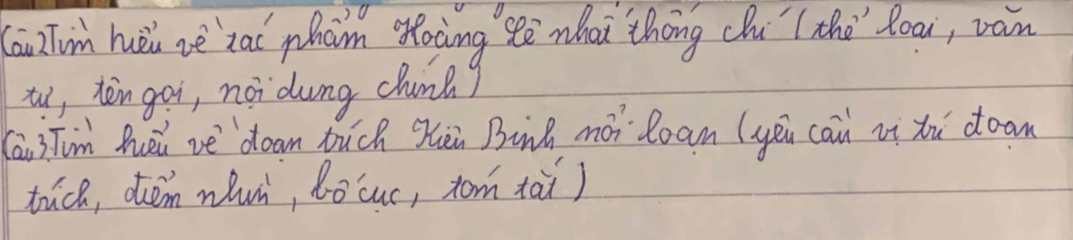 Câu2 Tìm hiểu về tác phẩm "Hoàng Lê nhất thống chí" (thể loại, văn
tự, tên gọi, nội dung chính)
Câu3, Tìm hiểu về đoạn trích Kiêu Binh nổi loạn (yêu cầu vị trí đoạn
trích, điểm nhìn, bố cục, tóm tắt)